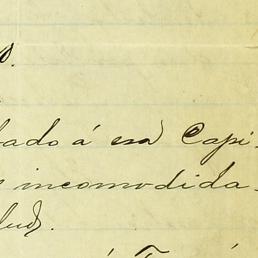 o.
bado á esa Capi-
e incomodida-
lud.